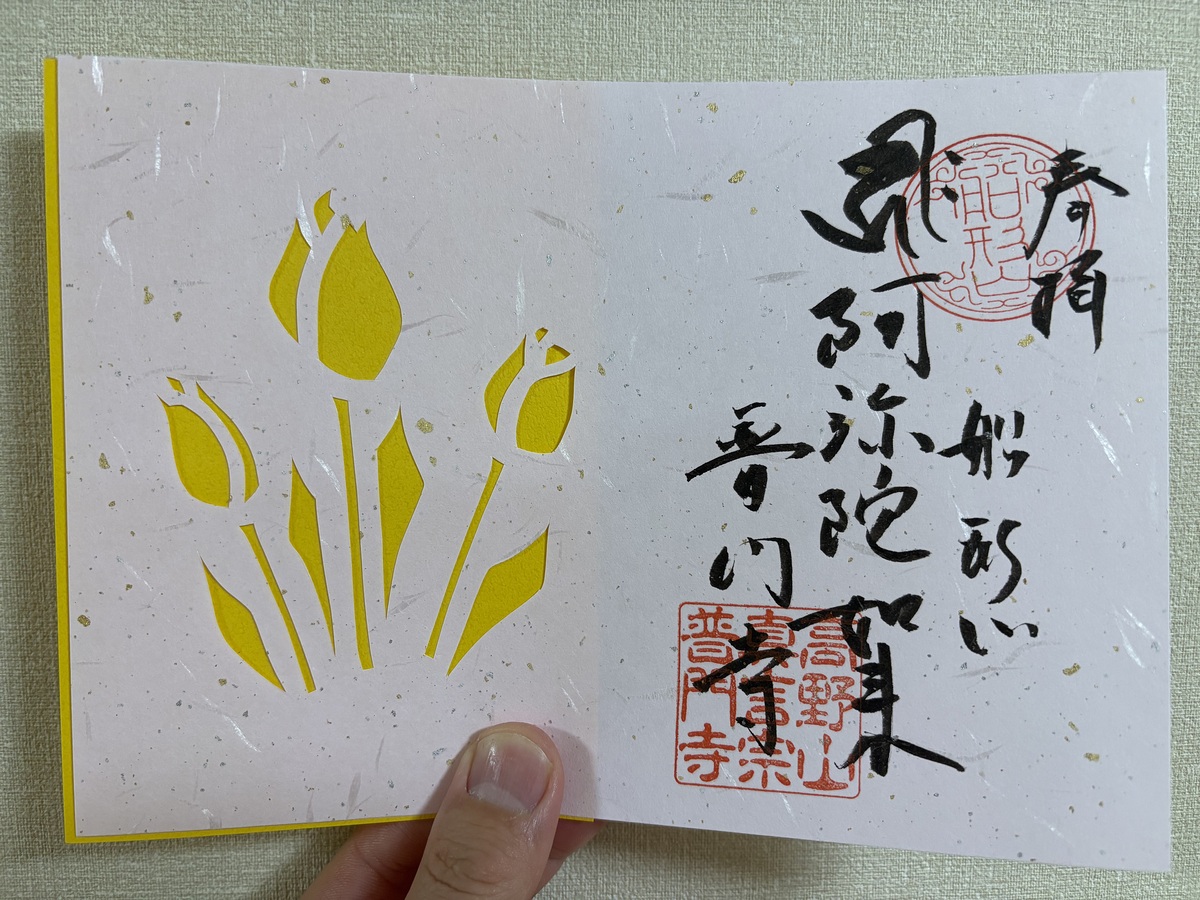 奉拝
船形山
阿弥陀如来
普門寺
船形山
高野山
真言宗
普門寺